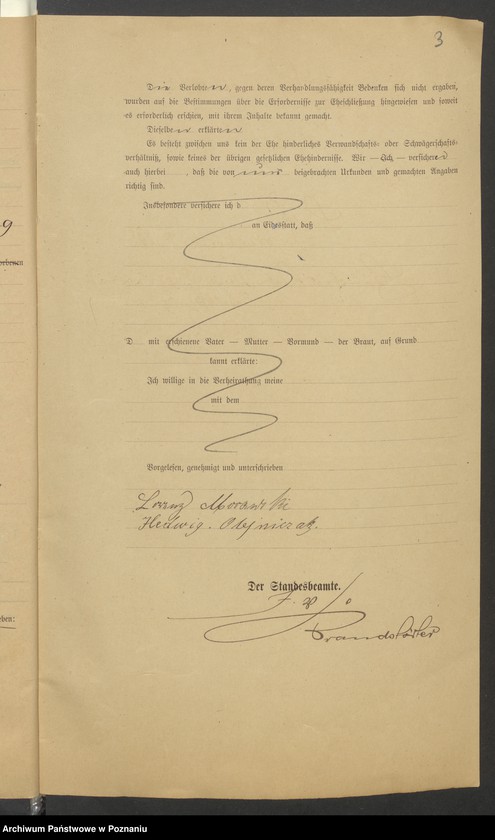 3
Die Verlobten, gegen deren Verhandlungsfähigkeit Bedenken sich nicht ergaben,
wurden auf die Bestimmungen über die Erfordernisse zur Eheschließung hingewiesen und soweit
es erforderlich erschien, mit ihrem Inhalte bekannt gemacht.
Dieselben erklärten
Es besteht zwischen uns kein der Ehe hinderliches Verwandschafts- oder Schwägerschafts-
verhältniß, sowie keines der übrigen gesetzlichen Ehehindernisse. Wir — Ich — versichern
auch hierbei , daß die von uns beigebrachten Urkunden und gemachten Angaben
richtig sind.
Insbesondere versichere ich d
an Eidesstatt, daß
D mit erschienene Vater — Mutter — Vormund — der Braut, auf Grund
kannt erklärte:
Ich willige in die Verheirathung meine
mit dem
Vorgelesen, genehmigt und unterschrieben
Morawski
Hedwig
Der Standesbeamte.
Brandstäter
9
ben:
Archiwum Państwowe w Poznaniu